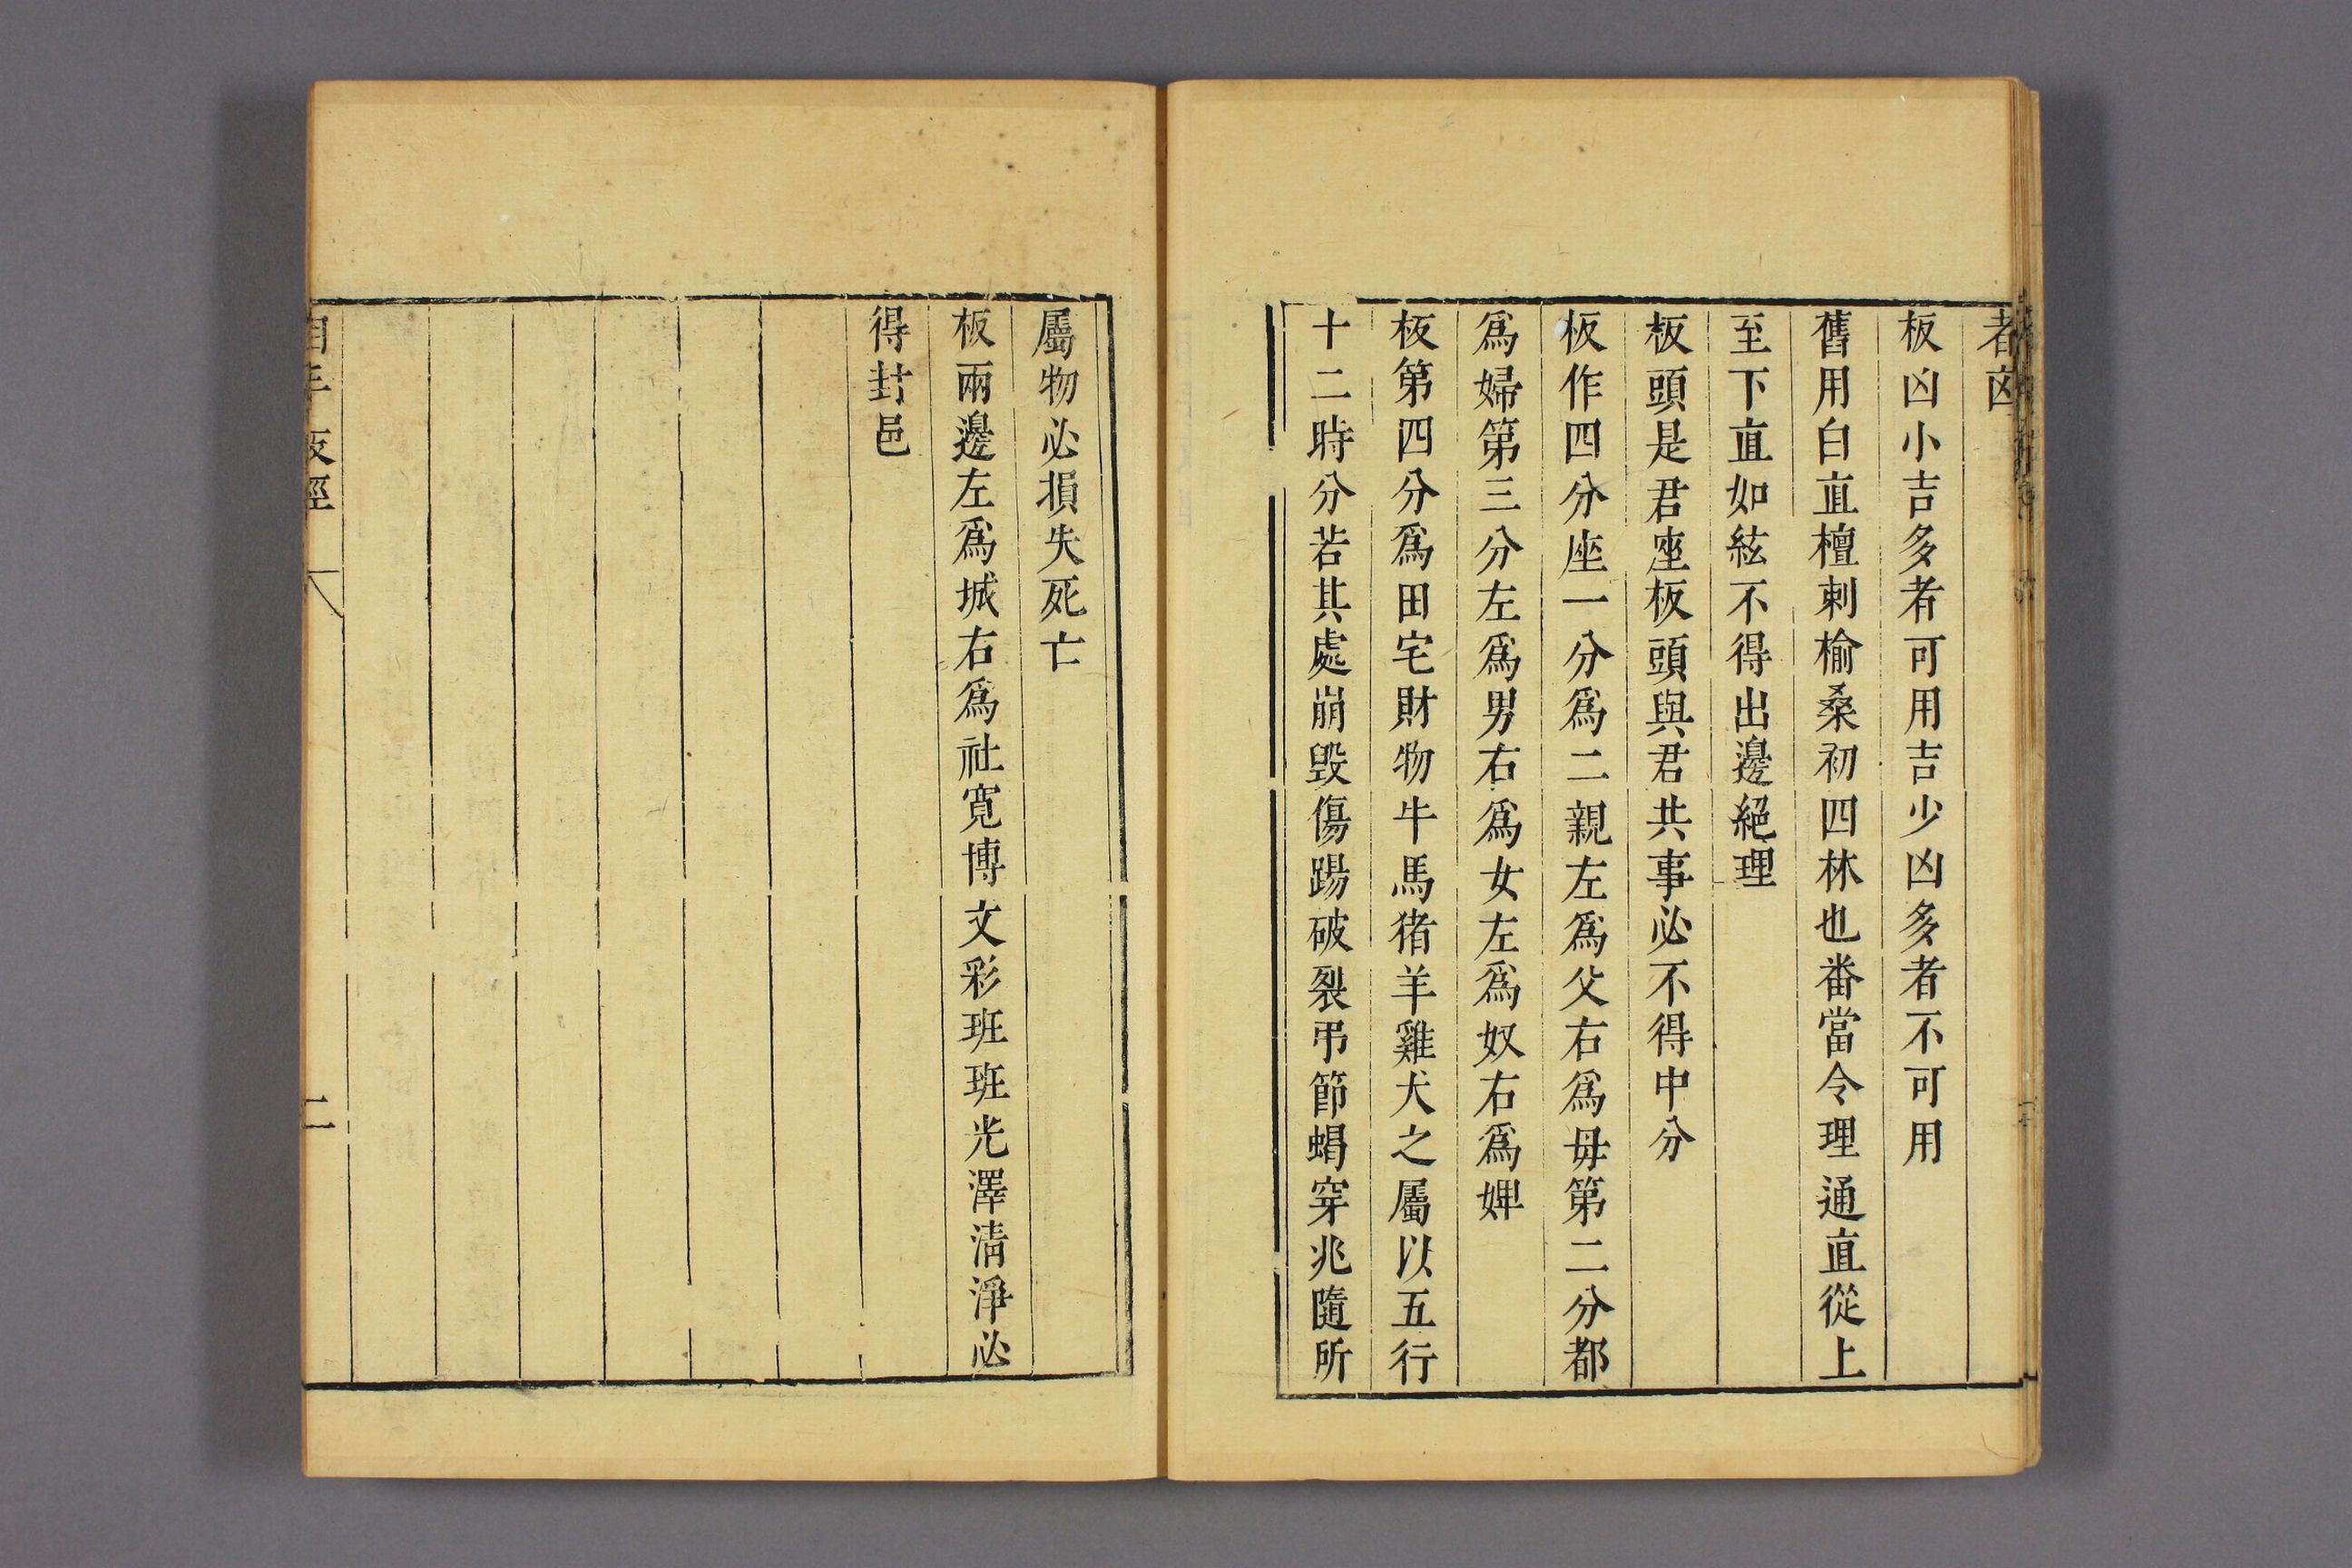 者凶
板凶小吉多者可用吉少凶多者不可用
舊用白直檀刺榆桑初四林也番當令理通直從上
至下直如絃不得出邊絕理
板頭是君座板頭與君共事必不得中分
板作四分座一分爲二親左爲父右爲母第二分都
爲婦第三分左爲男右爲女左爲奴右爲婢
板第四分爲田宅財物牛馬猪羊雞犬之屬以五行
十二時分若其處崩毀傷踢破裂弔節蝎穿兆隨所
屬物必損失死亡
板兩邊左爲城右爲社寬博文彩班班光澤清淨必
得封邑
相手板經
二